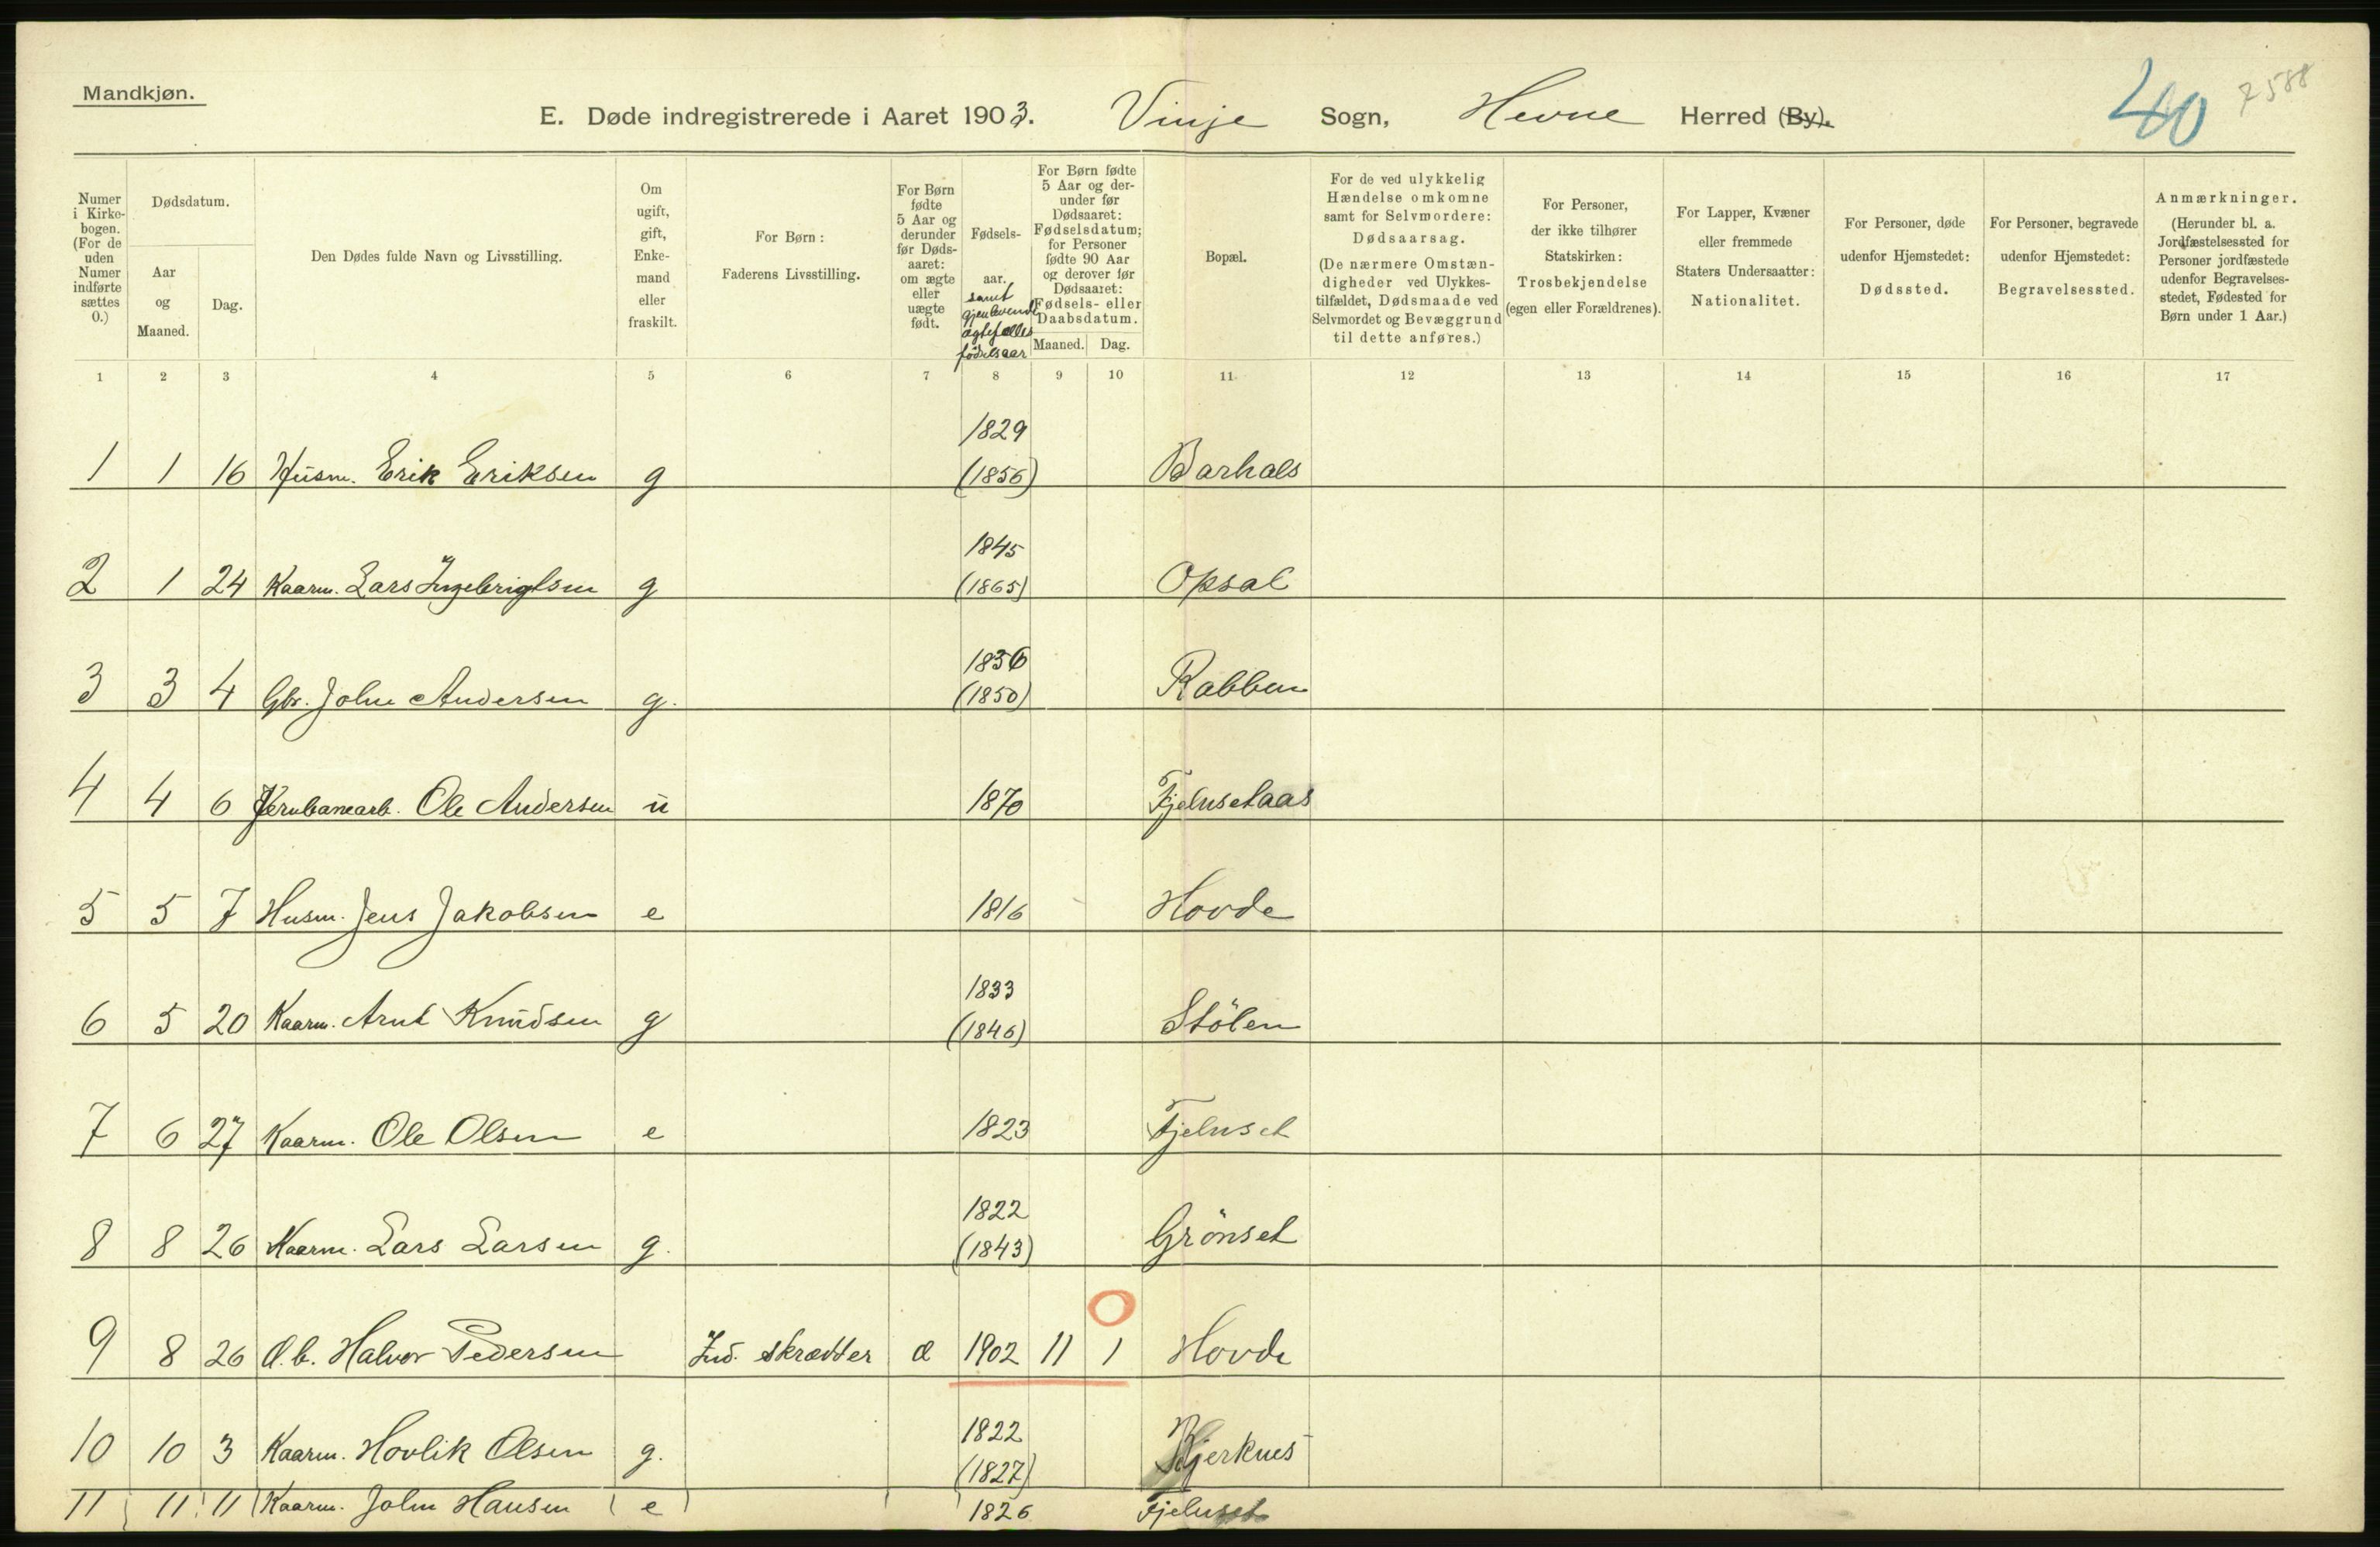 Mandkjøn.
E. Døde indregistrerede i Aaret 1903. Vinje Sogn, Hevne Herred (By).
40 7588
Numer i Kirkebogen. (For de uden Numer indførte sættes 0.)
Dødsdatum.
Aar og Maaned.
Dag.
Den Dødes fulde Navn og Livsstilling.
Om ugift, gift, Enkemand eller fraskilt.
For Børn: Faderens Livsstilling.
For Børn fødte 5 Aar og derunder før Dødsaaret: om ægte eller uægte født.
Fødselsaar. samt gjenlevende ægtefælles fødselsaar
For Børn fødte 5 Aar og derunder før Dødsaaret: Fødselsdatum; for Personer fødte 90 Aar og derover før Dødsaaret: Fødsels- eller Daabsdatum.
Maaned. Dag.
Bopæl.
For de ved ulykkelig Hændelse omkomne samt for Selvmordere: Dødsaarsag. (De nærmere Omstændigheder ved Ulykkestilfældet, Dødsmaade ved Selvmordet og Bevæggrund til dette anføres.)
For Personer, der ikke tilhører Statskirken: Trosbekjendelse (egen eller Forældrenes).
For Lapper, Kvæner eller fremmede Staters Undersaatter: Nationalitet.
For Personer, døde udenfor Hjemstedet: Dødssted.
For Personer, begravede udenfor Hjemstedet: Begravelsessted.
Anmærkninger. (Herunder bl. a. Jordfæstelsessted for Personer jordfæstede udenfor Begravelsesstedet, Fødested for Børn under 1 Aar.)
1 2 3 4 5 6 7 8 9 10 11 12 13 14 15 16 17
1 1 16 Husm. Erik Eriksen g 1829 (1856) Barhals
2 1 24 Kaarm. Lars Ingebrigtsen g 1845 (1865) Opsal
3 3 4 Gbr. John Andersen g. 1836 (1850) Rabben
4 4 6 Jernbanearb. Ole Andersen u 1870 Fjelnsetaas
5 5 7 Husm. Jens Jakobsen e 1816 Hovde
6 5 20 Kaarm. Arnt Knudsen g 1833 (1846) Stölen
7 6 27 Kaarm. Ole Olsen e 1823 Fjelnset
8 8 26 Kaarm. Lars Larsen g. 1822 (1843) Grönset
9 8 26 d.b. Halvor Pedersen Ind. skrædder æ 1902 11 1 Hovde
10 10 3 Kaarm. Hovlik Olsen g. 1822 (1827) Bjerknes
11 11 11 Kaarm. John Hansen e 1826 Fjelnset